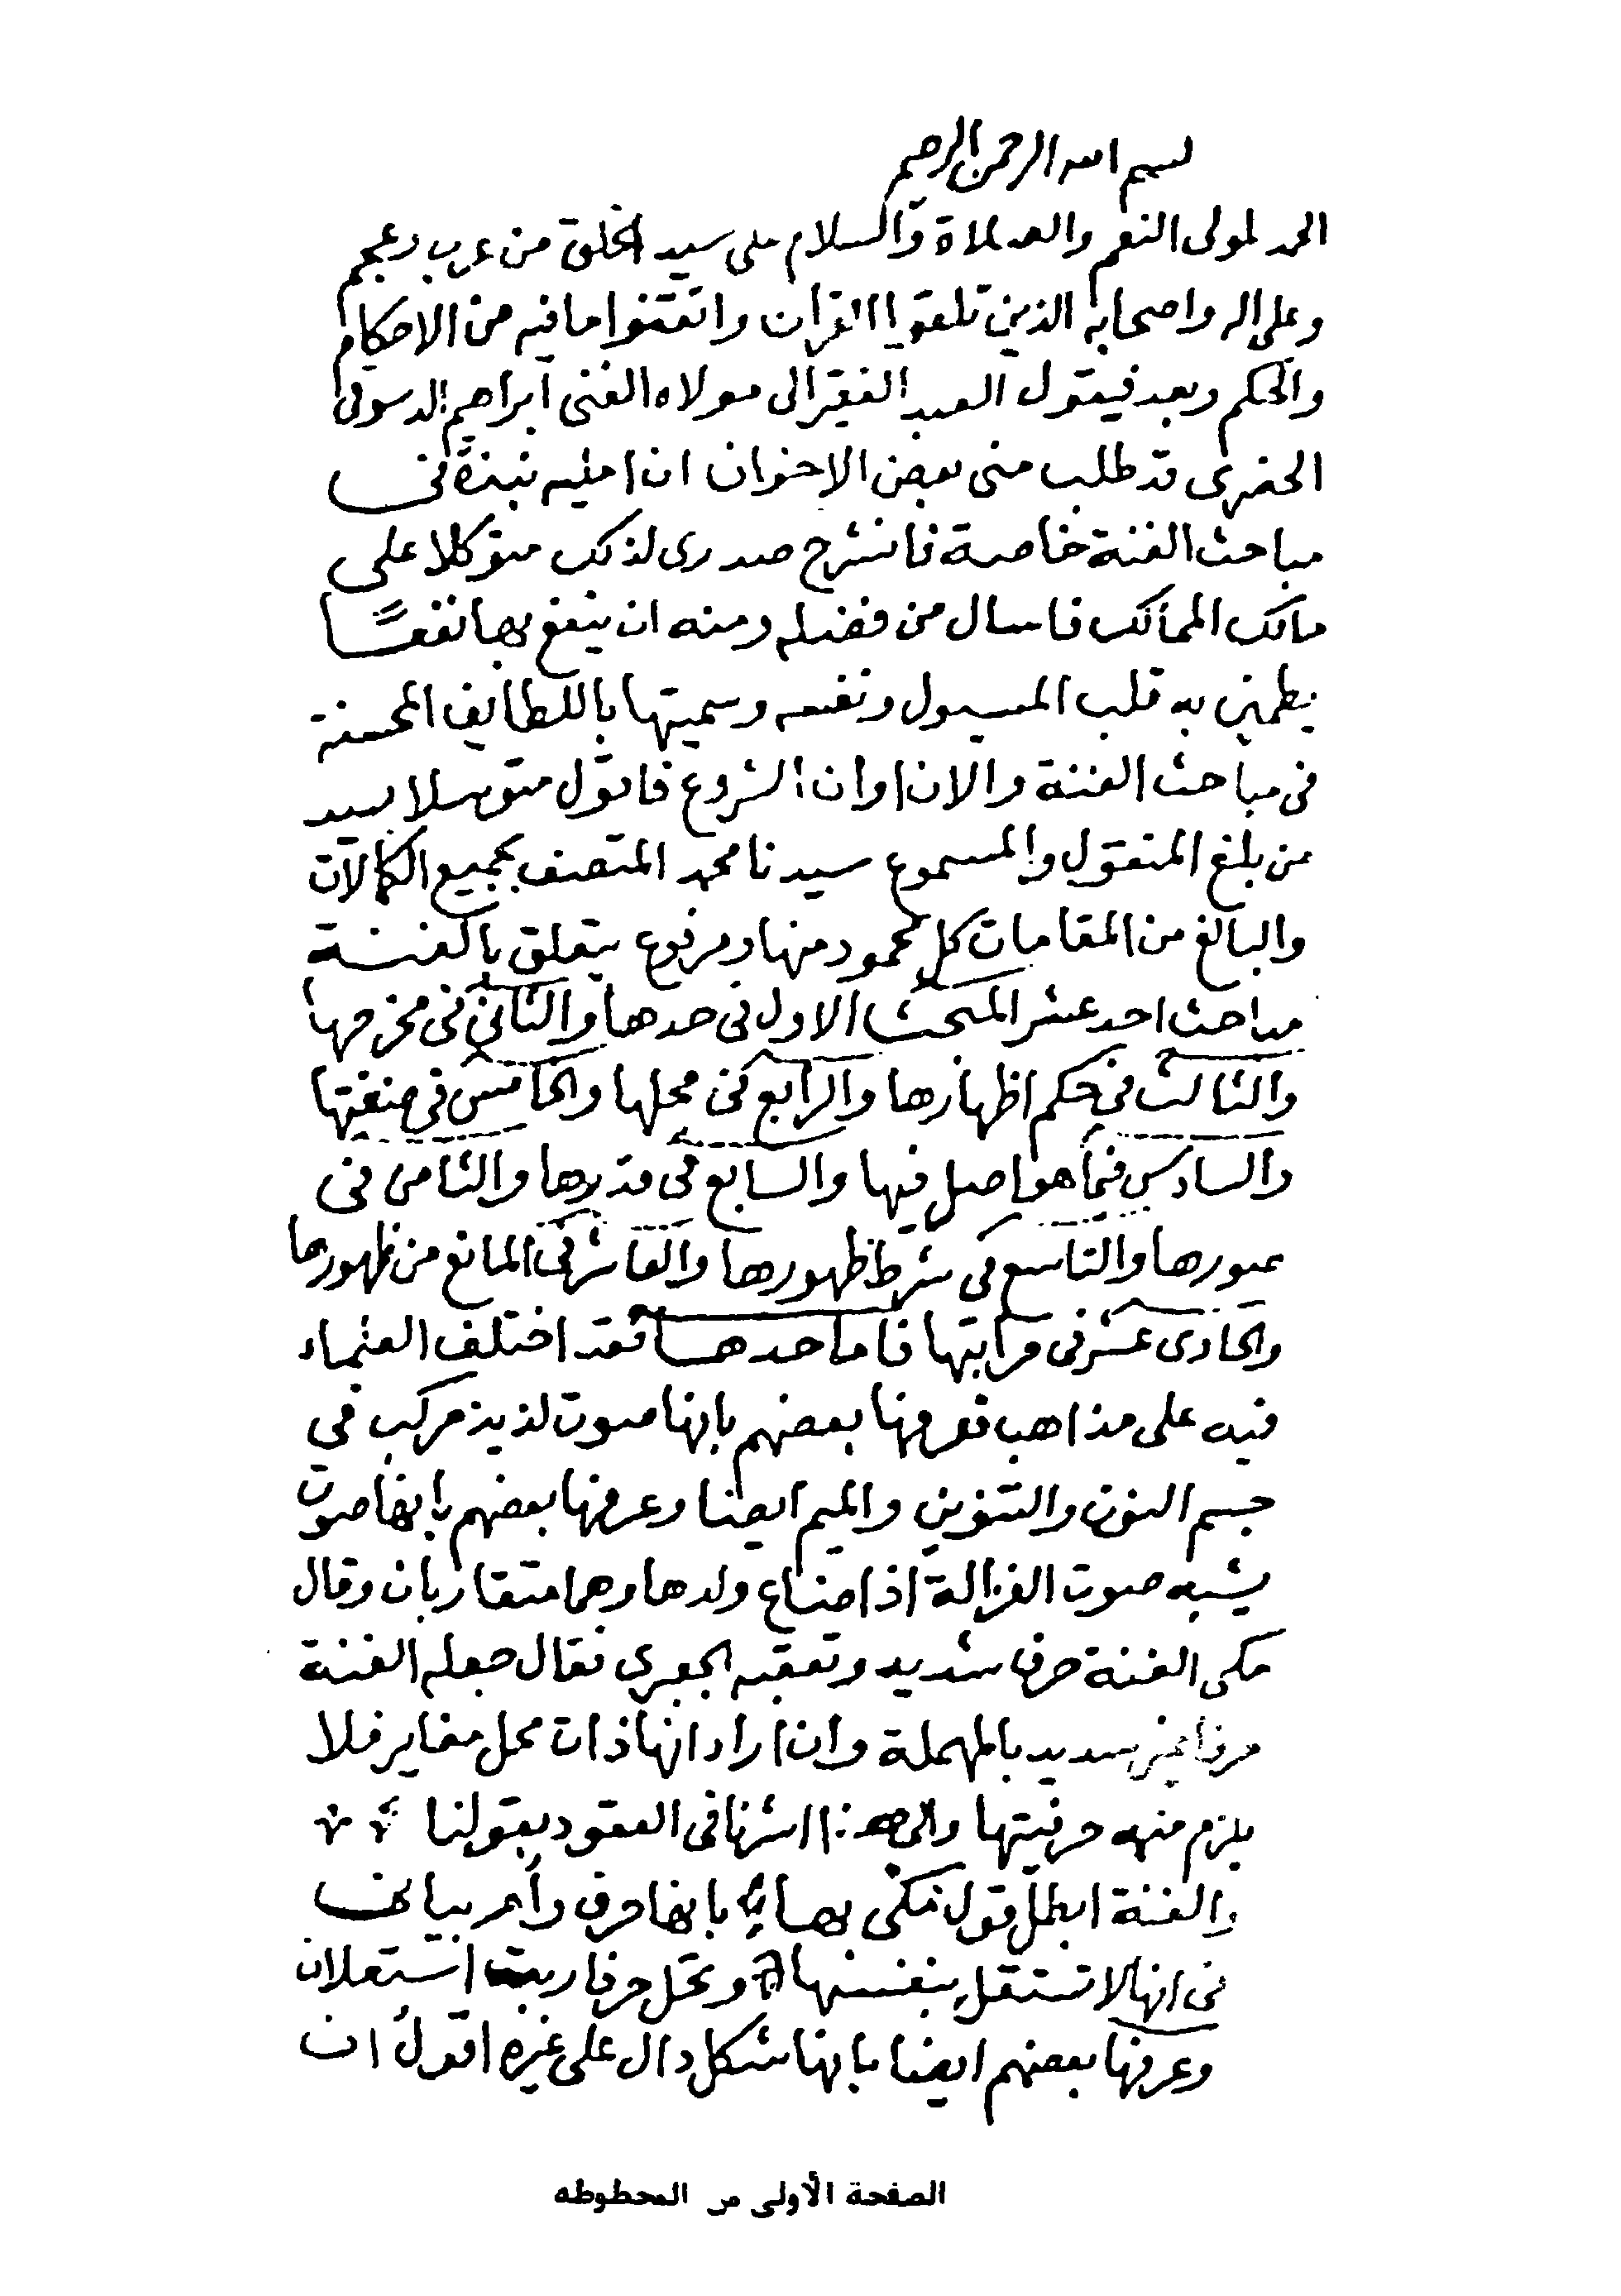 بسم الله الرحمن الرحيم
الحمد لمولى النعم والصلاة والسلام على سيد الخلق من عرب وعجم
وعلى اله واصحابه الذين تلقوا القران واتقنوا ما فيه من الاحكام
والحكم وبعد فيقول العبد الفقير الى مولاه الغنى ابراهيم الدسوقى
قد طلب منى بعض الاخوان ان املى نبذة فى
مباحث الغنة خاصة فانشرح صدرى لذلك متوكلا على
مالك الممالك فاسال من فضله ومنه ان ينفع بها نفعًا
يطمئن به قلب المسول ونفسه وسميتها باللطايف المحسنة
فى مباحث الغنة والان اوان الشروع فاقول متوسلا بسيد
من بلغ المنقول والمسموع سيدنا محمد المتصف بجميع الكمالات
والبالغ من المقامات كل محمود منها ومرفوع يتعلق بالغنة
مباحث احد عشر المبحث الاول فى حدها والثانى فى مخرجها
والثالث فى حكم اظهارها والرابع فى محلها والخامس فى صفتها
والسادس فيما هو اصل فيها والسابع فى قدرها والثامن فى
عبورها والتاسع فى شرط ظهورها والعاشر فى المانع من ظهورها
والحادى عشر فى مراتبها فاما حدها فقد اختلف العلماء
فيه على مذاهب فعرفها بعضهم بانها صوت لذيذ مركب في
جسم النون والتنوين والميم ايضا وعرفها بعضهم بانها صوت
يشبه صوت الغزالة اذا ضاع ولدها وهما متقاربان وقال
مكى الغنة حرف شديد وتعقبه الجعبرى فقال جعله الغنة
حرفا غير سديد بالمهملة وان اراد انها ذات محل مغاير فلا
يلزم منه حرفيتها والى هذا اشرنا فى العقود بقولنا
والغنة ابطل قول مكى بها بانها حرف وأمر بيانه
فى انها لا تستقل بنفسها وتحل حرفا استعلان
وعرفها بعضهم ايضا بانها شكل دال على غيره اقول ان
الصفحة الأولى من المخطوطه